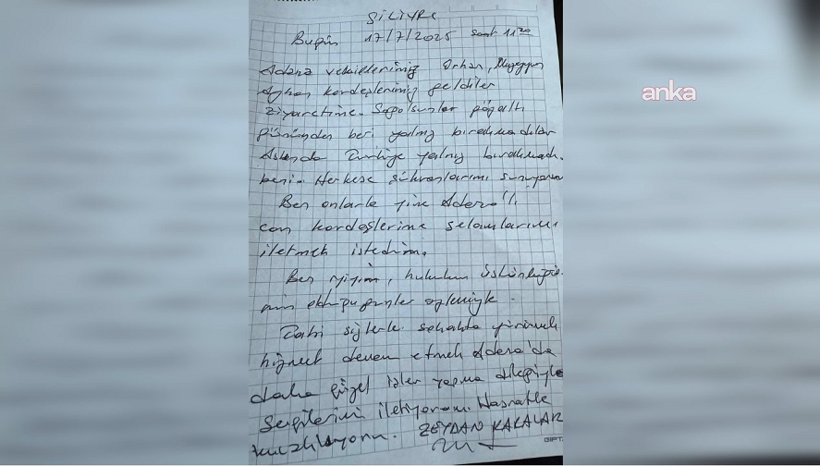 SİLİVRİ
Bugün 17/7/2025 saat 11:20
Adana vekillerimiz Orhan, Müzeyyen
Ayhan kardeşlerimiz geldiler
ziyaretime. Sağolsunlar gözaltı
gününden beri yalnız bırakmadılar
Aslında Türkiye yalnız bırakmadı
beni. Herkese şükranlarımı sunuyorum
Ben onlarla yine Adana'lı
can kardeşlerime selamlarımı
iletmek istedim.
Ben iyiyim, hukukun üstünlüğü
günler özlemiyle.
Tabi sizlerle sokakta yürümek
hizmete devam etmek Adana'da
daha güzel işler yapma dileğiyle
Sevgilerimi iletiyorum. Hasretle
kucaklıyorum. ZEYDAN KARALAR
anka